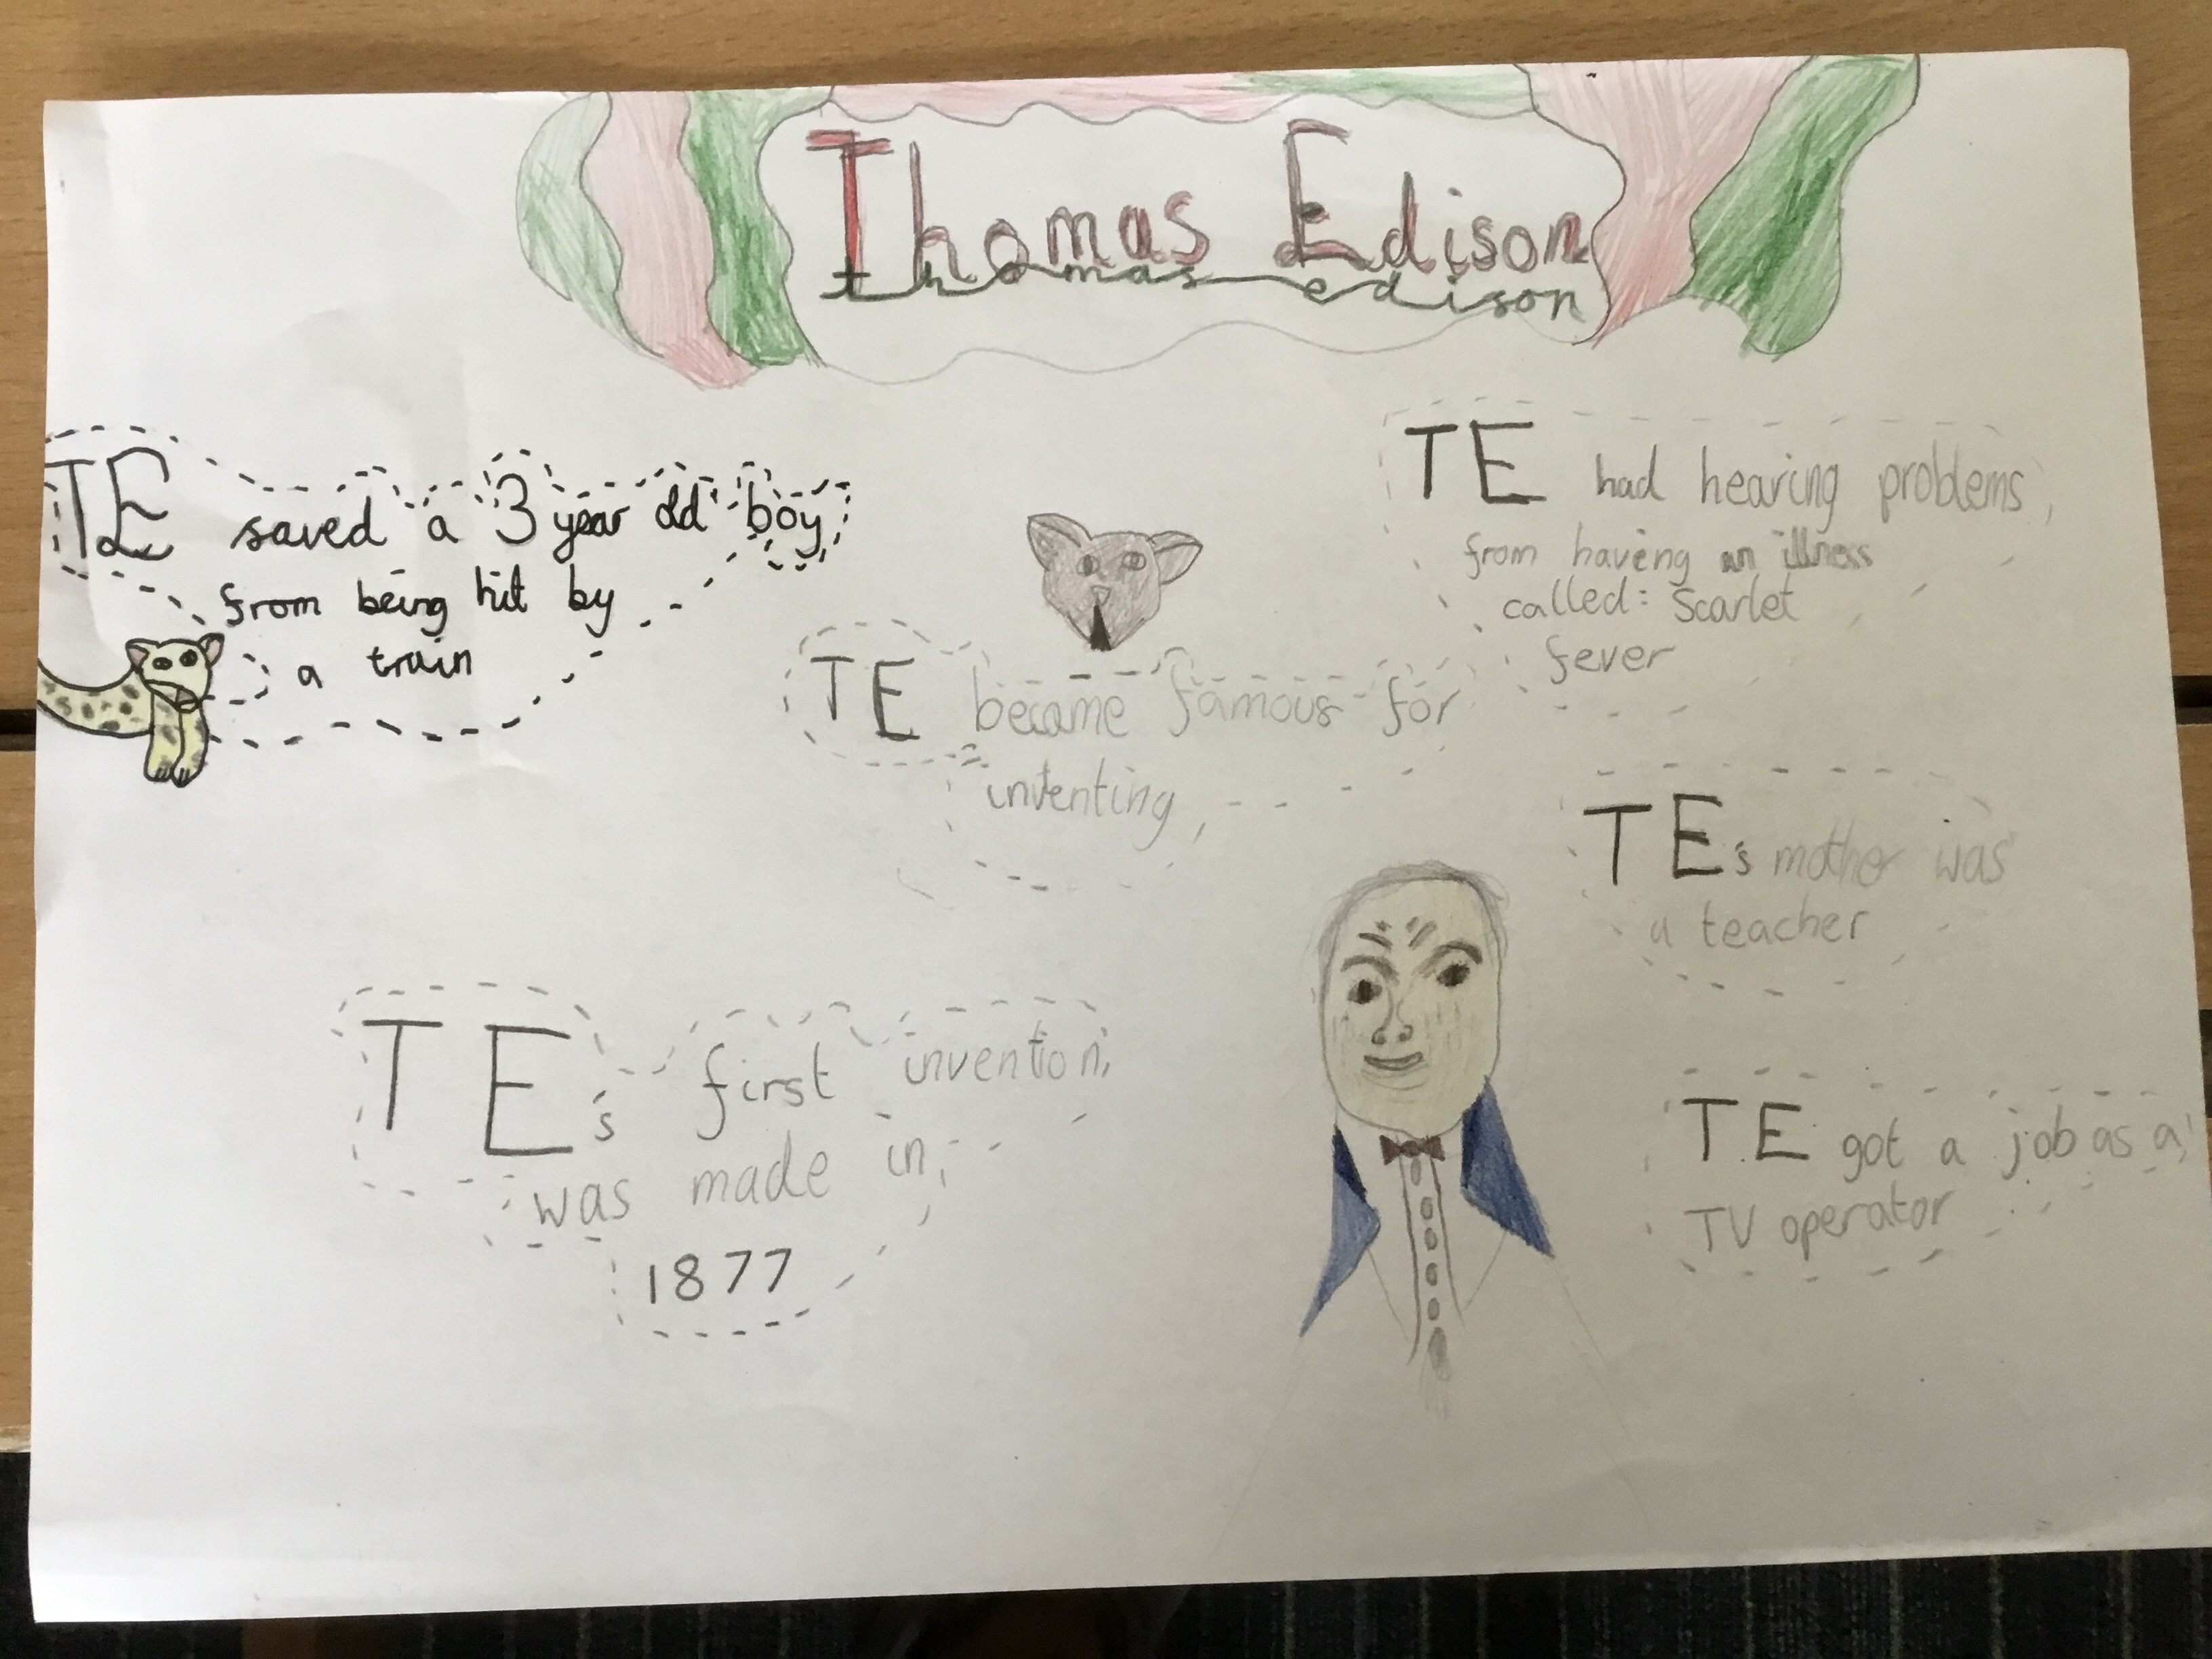 Thomas Edison
thomas edison
TE saved a 3 year old boy
from being hit by
a train
TE had hearing problems,
from having an illness
called: Scarlet
fever
TE became famous for
inventing,
TE's mother was
a teacher
TE's first invention,
was made in,
1877
TE got a job as a,
TV operator